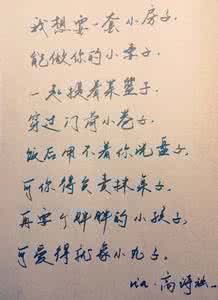 我想要一套小房子.
能做你的小妻子.
一起提着菜篮子.
穿过门前小巷子.
饭后用不着你洗盘子.
可你得负责抹桌子.
再要个胖胖的小孩子.
可爱得就象小丸子.
via·高诗